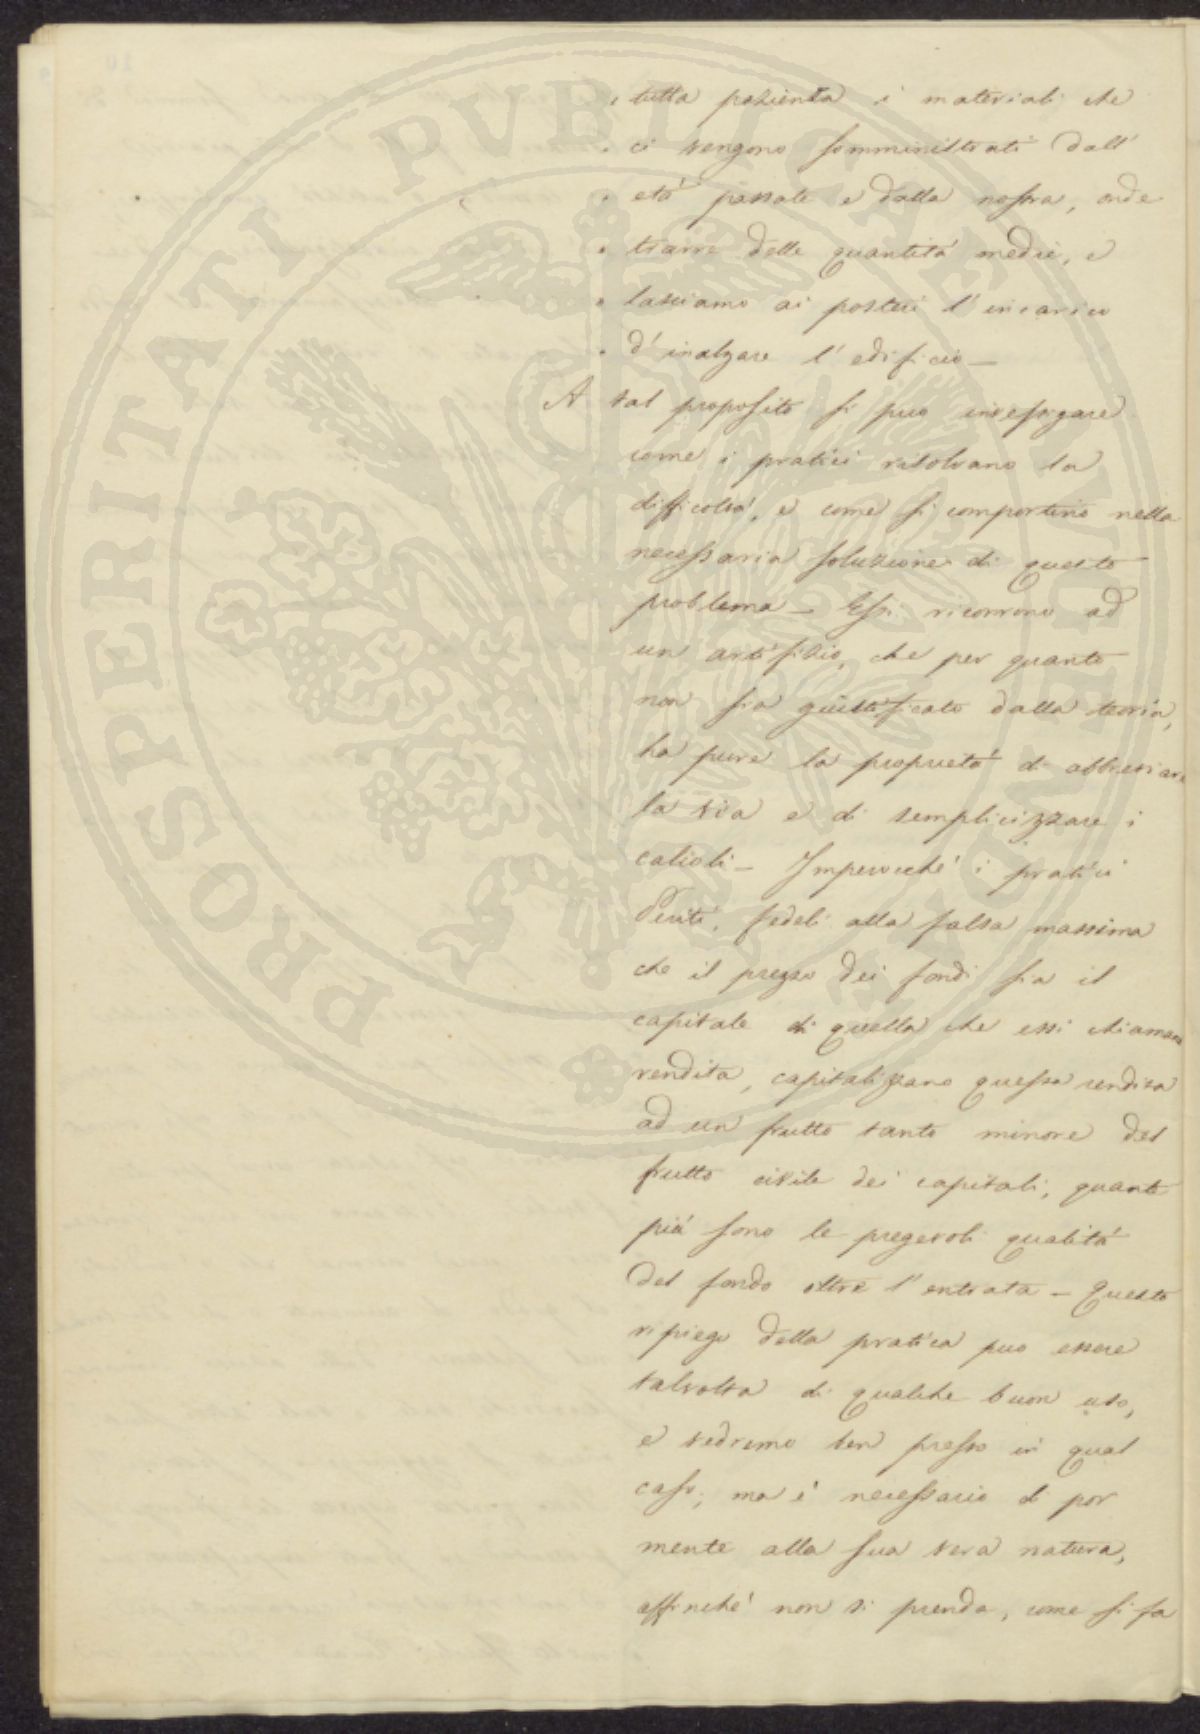 " tutta pazienza i materiali che
" ci vengono somministrati dall'
" età passate e dalla nostra, onde
" trarre delle quantità medie, e
" lasciamo ai posteri l'incarico
" d'inalzare l'edificio —
A tal proposito si può investigare
come i pratici risolvano la
difficoltà, e come si comportino nella
necessaria soluzione di questo
problema — Essi ricorrono ad
un artifizio, che per quanto
non sia giustificato dalla teoria,
ha pure la proprietà di abbreviare
la via e di semplicizzare i
calcoli — Imperocché i pratici
Periti, fedeli alla falsa massima
che il prezzo dei fondi sia il
capitale di quella che essi chiamano
rendita, capitalizzano questa rendita
ad un frutto tanto minore del
frutto civile dei capitali, quante
più sono le pregevoli qualità
del fondo oltre l'entrata — Questo
ripiego della pratica può essere
talvolta di qualche buon uso,
e vedremo ben presto in qual
caso; ma è necessario di por
mente alla sua vera natura,
affinché non si prenda, come si fa
PROSPERITATI PUBLICAE AUGENDAE